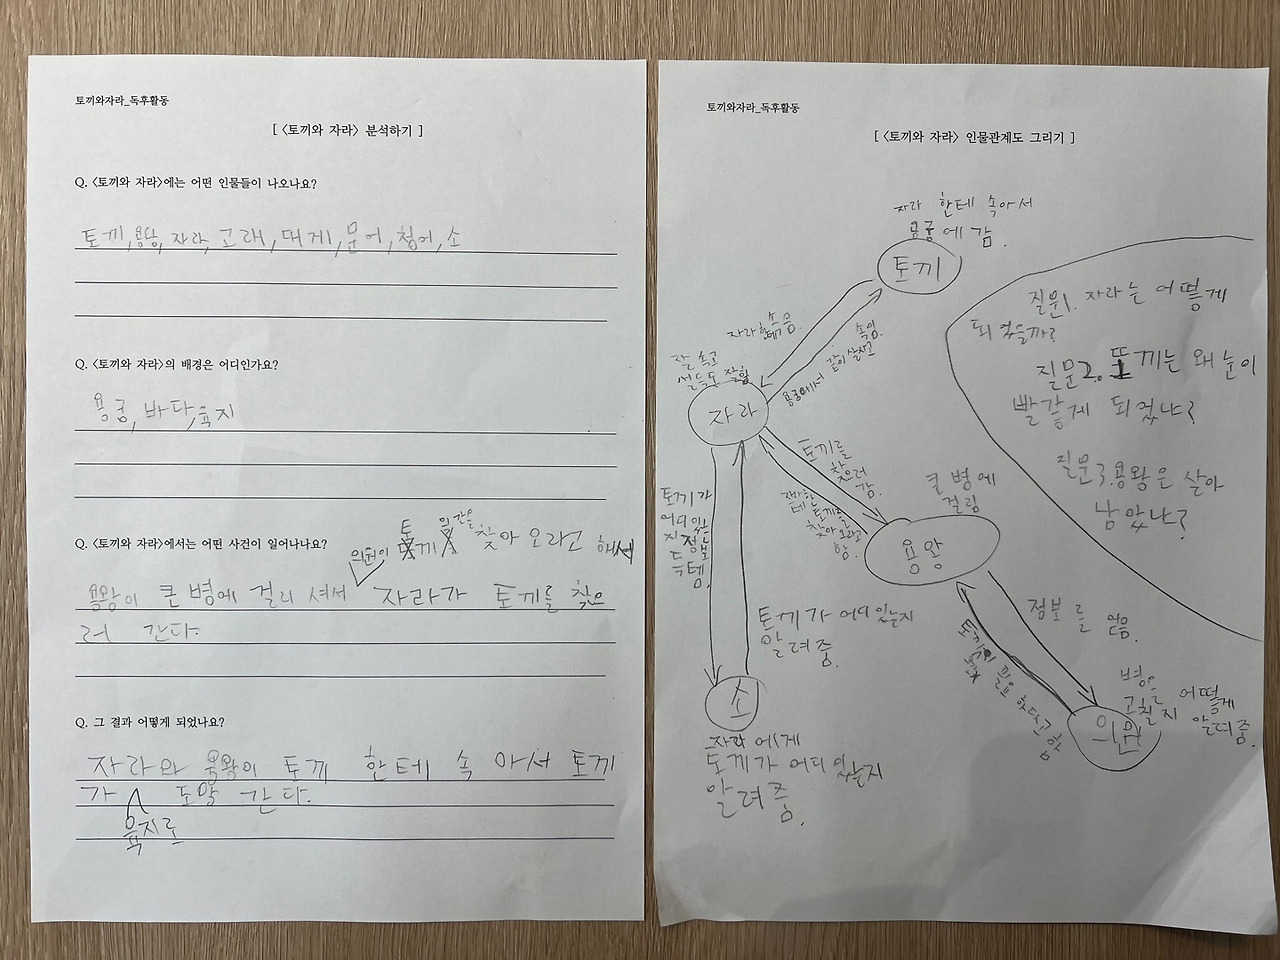 토끼와자라_독후활동
[ <토끼와 자라> 분석하기 ]
Q. <토끼와 자라>에는 어떤 인물들이 나오나요?
토끼, 용왕, 자라, 고래, 대게, 문어, 청어, 소
Q. <토끼와 자라>의 배경은 어디인가요?
용궁, 바다, 육지
Q. <토끼와 자라>에서는 어떤 사건이 일어나나요?
의원이 토끼의 간을 찾아 오라고 해서
용왕이 큰 병에 걸리셔서 자라가 토끼를 찾으
러 간다.
Q. 그 결과 어떻게 되었나요?
자라와 용왕이 토끼 한테 속 아서 토끼
가 도망 간다.
육지로
토끼와자라_독후활동
[ <토끼와 자라> 인물관계도 그리기 ]
자라 한테 속아서
용궁에 감.
토끼
자라한테 속음.
속임
용궁에서 같이 살자고
잘 속고
설득도 잘함
자라
토끼를
찾으러
감.
자라한
테 토끼를
찾아오라고
함.
큰 병에
걸림
용왕
토끼가
어디있는
지 정보
득템.
토끼가 어디 있는지
알려줌.
소
자라 에게
토끼가 어디 있는지
알려줌.
정보를 얻음.
토끼 필요 하다고 함
병을 어떻게
고칠지 알려줌.
의원
질문1. 자라는 어떻게
되었을까?
질문2. 토끼는 왜 눈이
빨갛게 되었냐?
질문3. 용왕은 살아
남았냐?